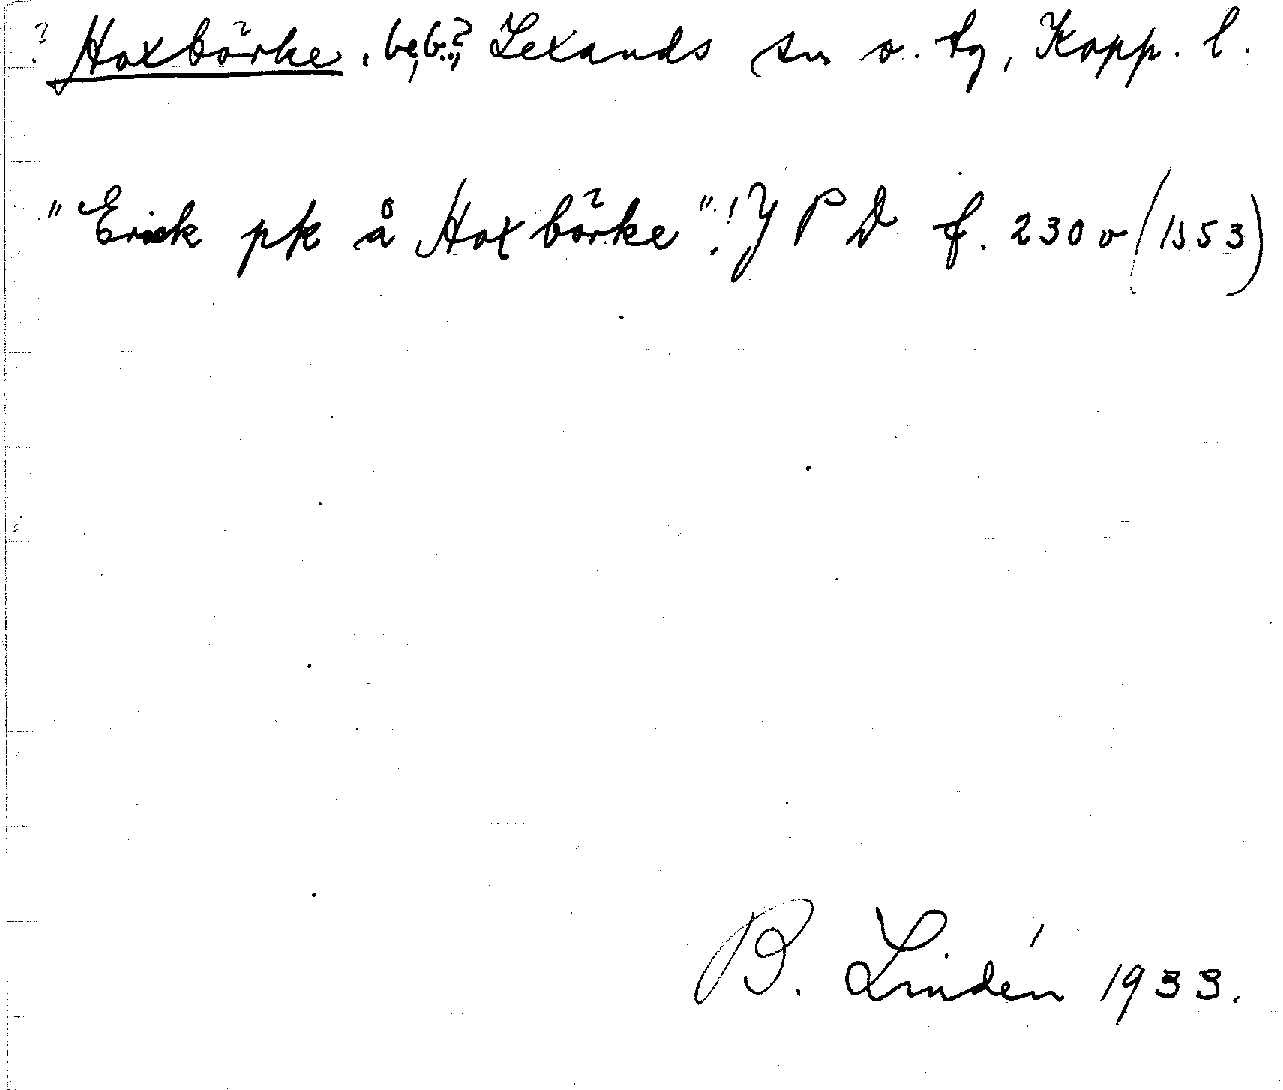 ? Hoxbörke, beb.?, Lexands sn o. tg, Kopp. l.
"Erick pk å Hoxbörke"! J P D f. 230 v (1553)
B. Lindén 1933.